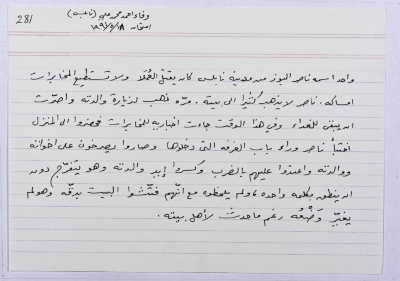 281
وفاء احمد محمد علي (نابلس)
امتحان ٨٩/٥/١٨
واحد اسمه ناصر البوز من مدينة نابلس كان يقتل العُملا ولا تستطيع المخابرات
امساكه. ناصر لا يذهب كثيرا الى بيته. مرّه ذهب لزيارة والدته واصرّت
ان يبقى للغداء وفي هذا الوقت جاءت اخبارية للمخابرات فحضروا الى المنزل
اختبأ ناصر وراء باب الغرفه التي دخلوها وصاروا يصرخون على اخوانه
ووالدته واعتدوا عليهم بالضرب وكسروا إيد والدته وهو يتفرّج دون
ان ينطق بكلمه واحده، ولم يلحظوه مع انّهم فتّشوا البيت بدقّه وهو لم
يغيّر وَضْعُه رغم ما حدث لأهل بيته.